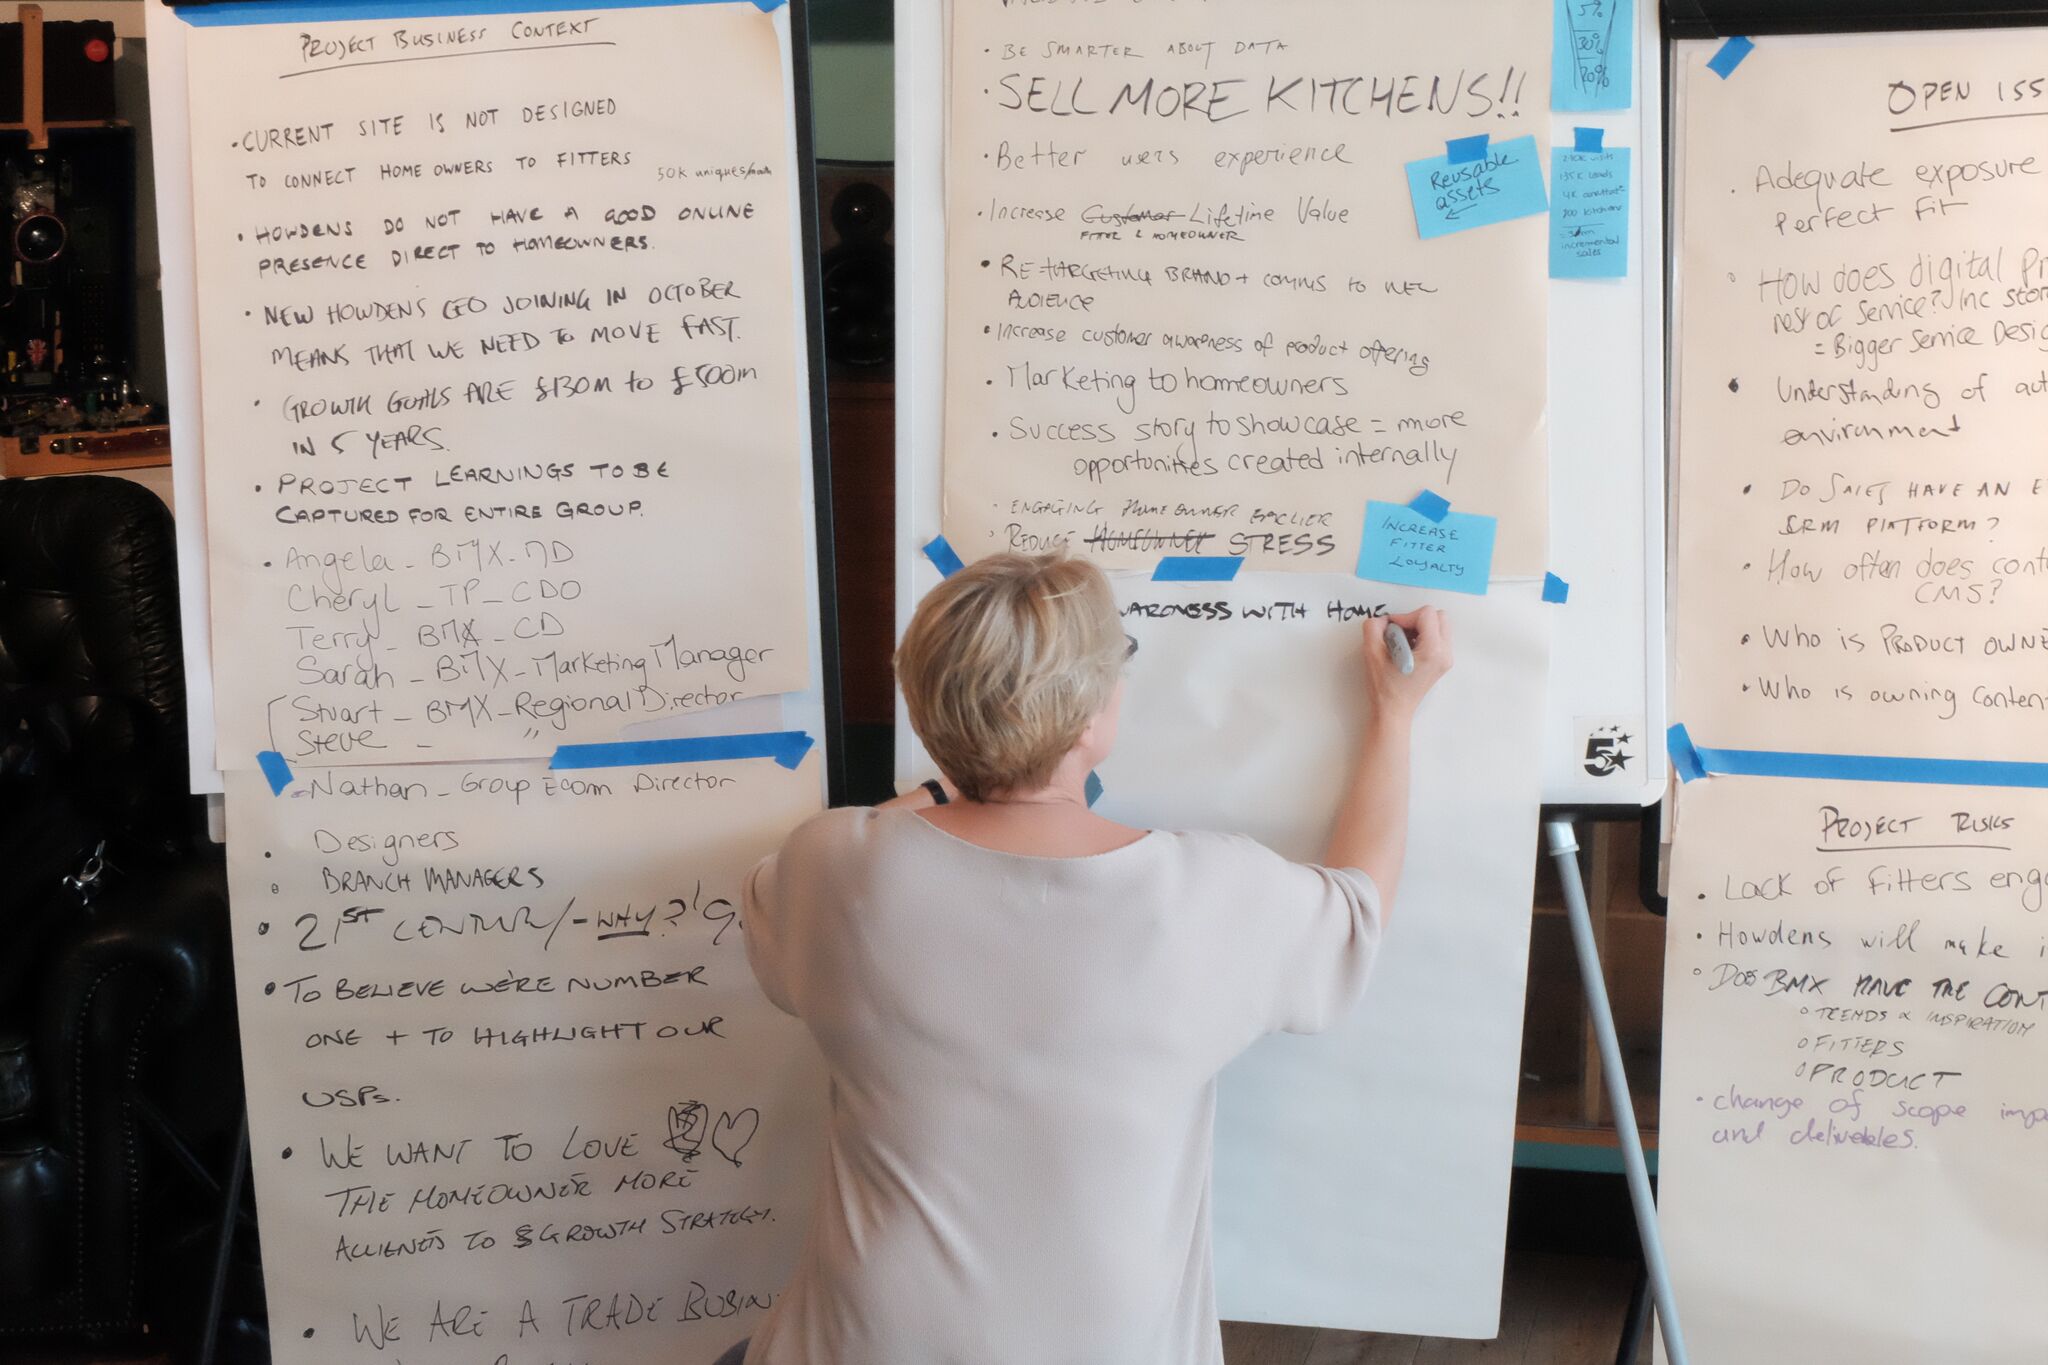 PROJECT BUSINESS CONTEXT
• CURRENT SITE IS NOT DESIGNED
TO CONNECT HOME OWNERS TO FITTERS
50K uniques/month
• HOWDENS DO NOT HAVE A GOOD ONLINE
PRESENCE DIRECT TO HOMEOWNERS.
• NEW HOWDENS CEO JOINING IN OCTOBER
MEANS THAT WE NEED TO MOVE FAST.
• GROWTH GOALS ARE £130M to £500m
IN 5 YEARS.
• PROJECT LEARNINGS TO BE
CAPTURED FOR ENTIRE GROUP.
• Angela - BMX - MD
Cheryl - TP - CDO
Terry - BMX - CD
Sarah - BMX - Marketing Manager
Stuart - BMX - Regional Director
Steve - "
Nathan - Group Ecom Director
• Designers
• BRANCH MANAGERS
• 21ST CENTURY - WHY?
• TO BELIEVE WE'RE NUMBER
ONE + TO HIGHLIGHT OUR
USPs.
• WE WANT TO LOVE
THE HOMEOWNER MORE
ALLIENED TO GROWTH STRATEGY.
• WE ARE A TRADE BUSIN
• BE SMARTER ABOUT DATA
• SELL MORE KITCHENS!!
• Better users experience
• Increase Customer Lifetime Value
FITTER & HOMEOWNER
• RE-TARGETING BRAND + COMMS TO NEW
AUDIENCE
• Increase customer awareness of product offering
• Marketing to homeowners
• Success story to showcase = more
opportunities created internally
• ENGAGING HOMEOWNER EARLIER
• REDUCE HOMEOWNER STRESS
WARENESS WITH HOME
5%
30%
70%
Reusable
assets
135K leads
incremental
sales
INCREASE
FITTER
LOYALTY
5
OPEN ISS
• Adequate exposure
Perfect Fit
• How does digital Pr
rest of Service? Inc stor
= Bigger Service Desig
• Understanding of au
environment
• DO SALES HAVE AN E
CRM PLATFORM?
• How often does cont
CMS?
• WHO IS PRODUCT OWNE
• Who is owning conten
PROJECT RISKS
• Lack of fitters enga
• Howdens will make i
• Does BMX HAVE THE CONT
◦ TRENDS & INSPIRATION
◦ FITTERS
◦ PRODUCT
• change of scope impa
and deliverables.